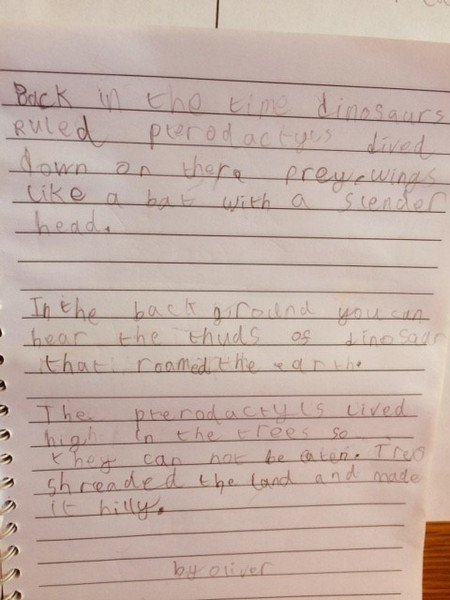 Back in the time dinosaurs
Ruled pterodactyls dived
down on there prey, wings
Like a bat with a slender
head.
In the back ground you can
hear the thuds of dinosaur
that roamed the earth.
The pterodactyls lived
high in the trees so
they can not be eaten. Tres
shreaded the land and made
it hilly.
by oliver